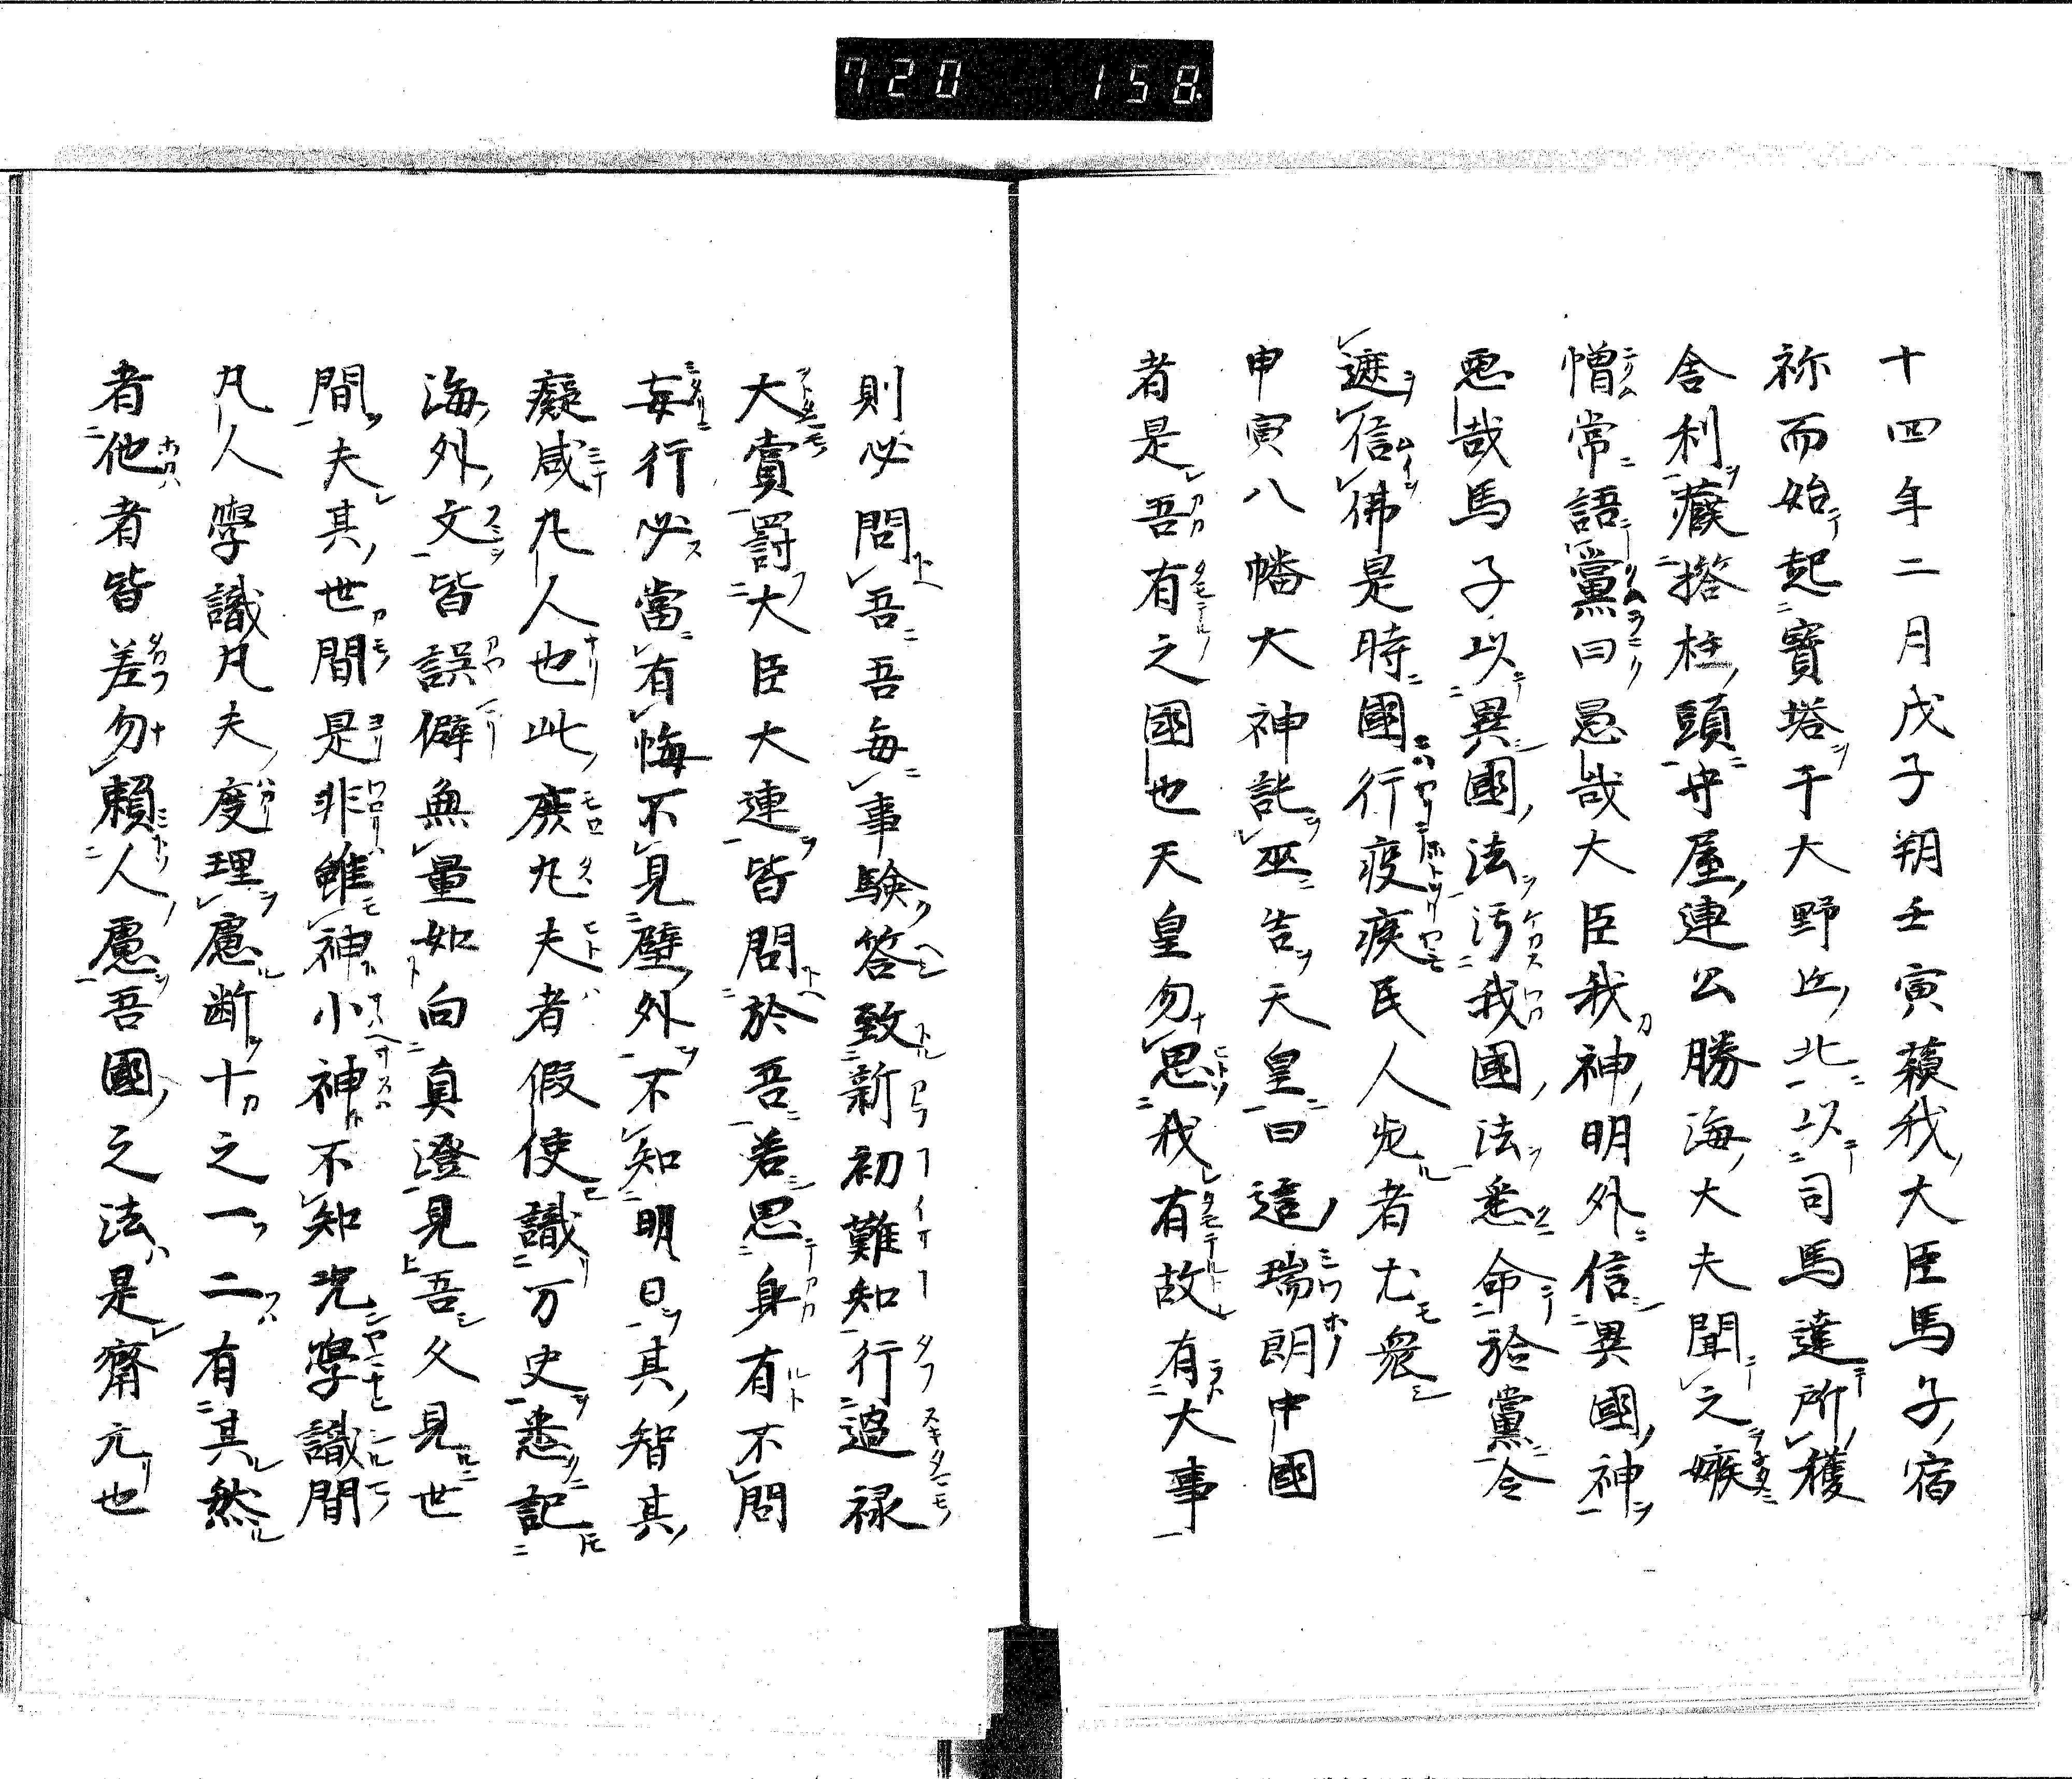 720 158
十四年二月戊子朔壬寅蘓我大臣馬子宿
祢而始起寶塔于大野丘北以司馬達所獲
舎利蔵搭柱頭守屋連公勝海大夫聞之嫉
憎常語黨曰愚哉大臣我神明外信異國神
悪哉馬子以異國法汚我國法悉命於黨令
遮信佛是時國行疫疾民人死者尤衆
申寅八幡大神託巫告天皇曰這瑞朗中國
者是吾有之國也天皇勿思我有故有大事
則必問吾吾毎事験答致新初難知行過禄
大賞罰大臣大連皆問於吾若思身有不問
妄行必當有悔不見壁外不知明日其智其
癡咸凡人也此疾凡夫者假使識万史悉記
海外文皆誤僻無量如向真澄見吾久見世
間夫其世間是非雖神小神不知况學識間
凡人學識凡夫度理慮断十之一二有其然
者他者皆差勿頼人慮吾國之法是齋元也